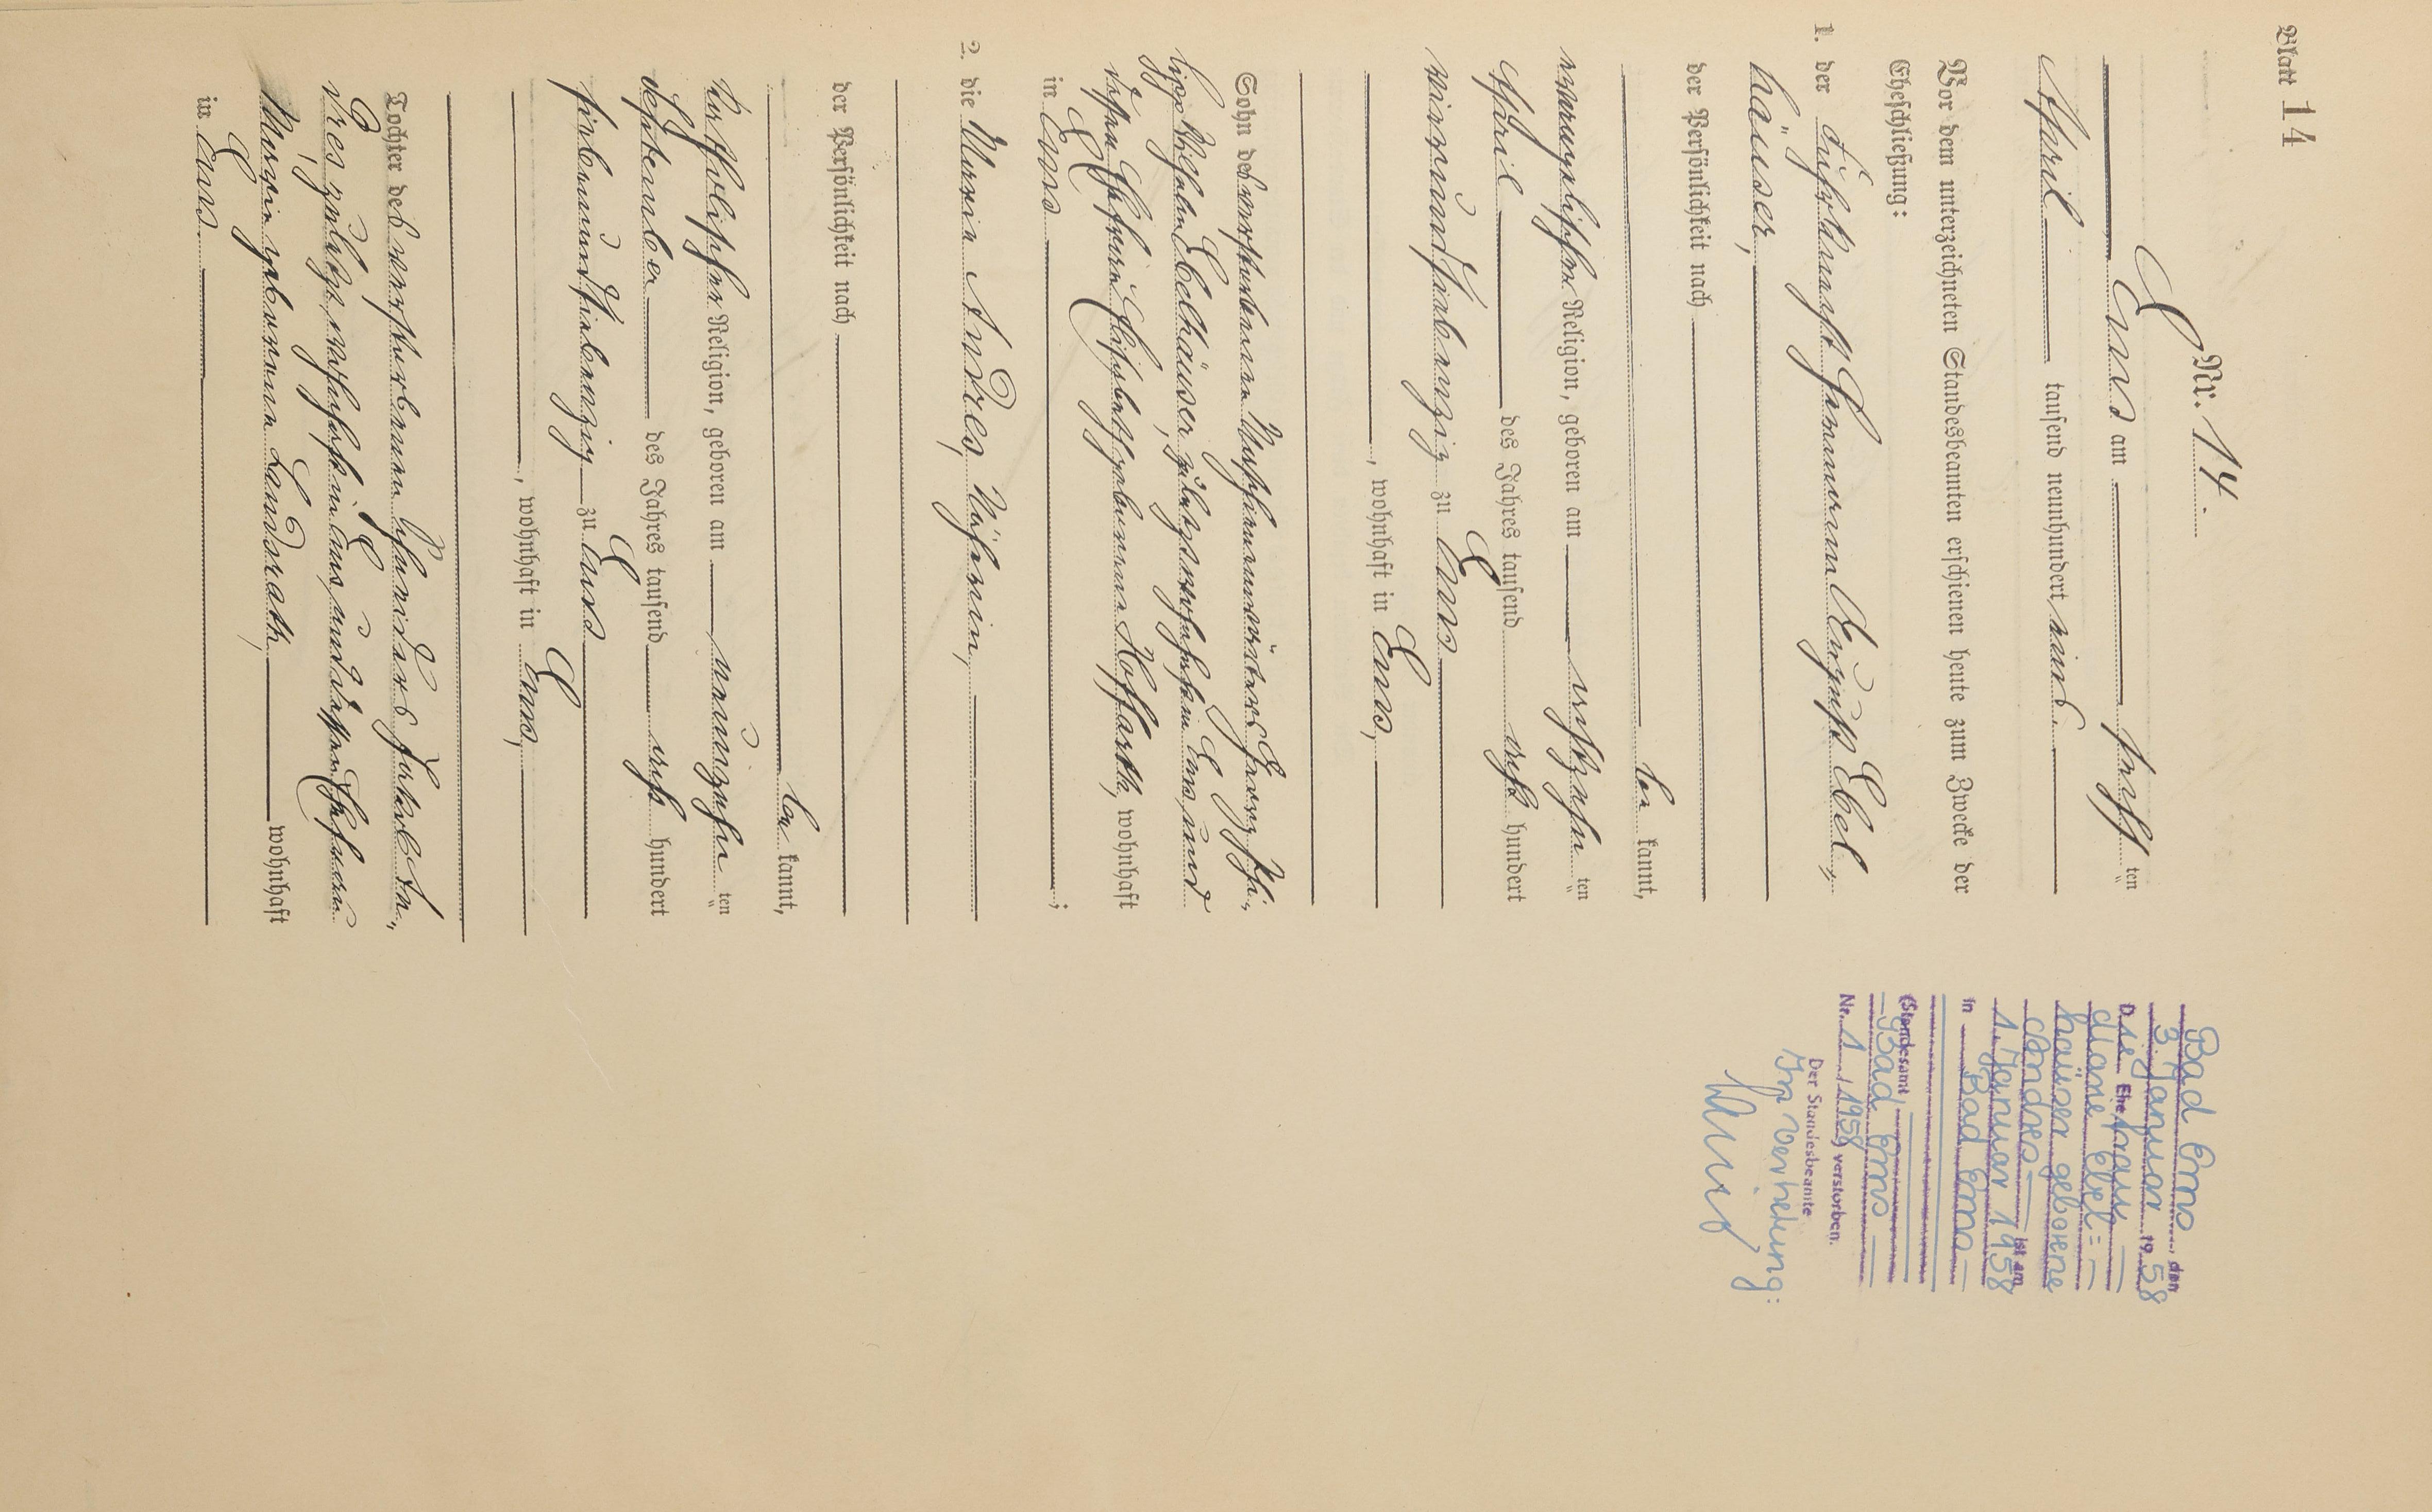 Blatt 14
Nr. 14.
Ems am fünf ten
April tausend neunhundert eins.
Vor dem unterzeichneten Standesbeamten erschienen heute zum Zwecke der
Eheschließung:
1. der Hermann August Ebel-
häuser,
der Persönlichkeit nach
be kannt,
evangelischer Religion, geboren am achtzehn ten
April des Jahres tausend acht hundert
vierundsiebenzig zu Ems
, wohnhaft in Ems,
Sohn des verstorbenen
Wilhelm Ebelhäuser, zuletzt wohnhaft in Ems, und
dessen Ehefrau Elisabeth geborenen Hoffarth, wohnhaft
in Ems ;
2. die Maria Andres, Näherin,
der Persönlichkeit nach
be kannt,
katholischer Religion, geboren am neunzehn ten
September des Jahres tausend acht hundert
siebenundsiebenzig zu Ems
, wohnhaft in Ems,
Tochter des verstorbenen Schneiders Jakob An-
dres, zuletzt wohnhaft in Ems, und dessen Ehefrau
geborenen Landrath, wohnhaft
in Ems.
Bad Ems, den
3. Januar 1958
Die Ehefrau
Ebel=
häuser geborene
Andres ist am
1. Januar 1958
in Bad Ems
(Standesamt
Bad Ems
Nr. 1/1958) verstorben.
Der Standesbeamte
In Vertretung: